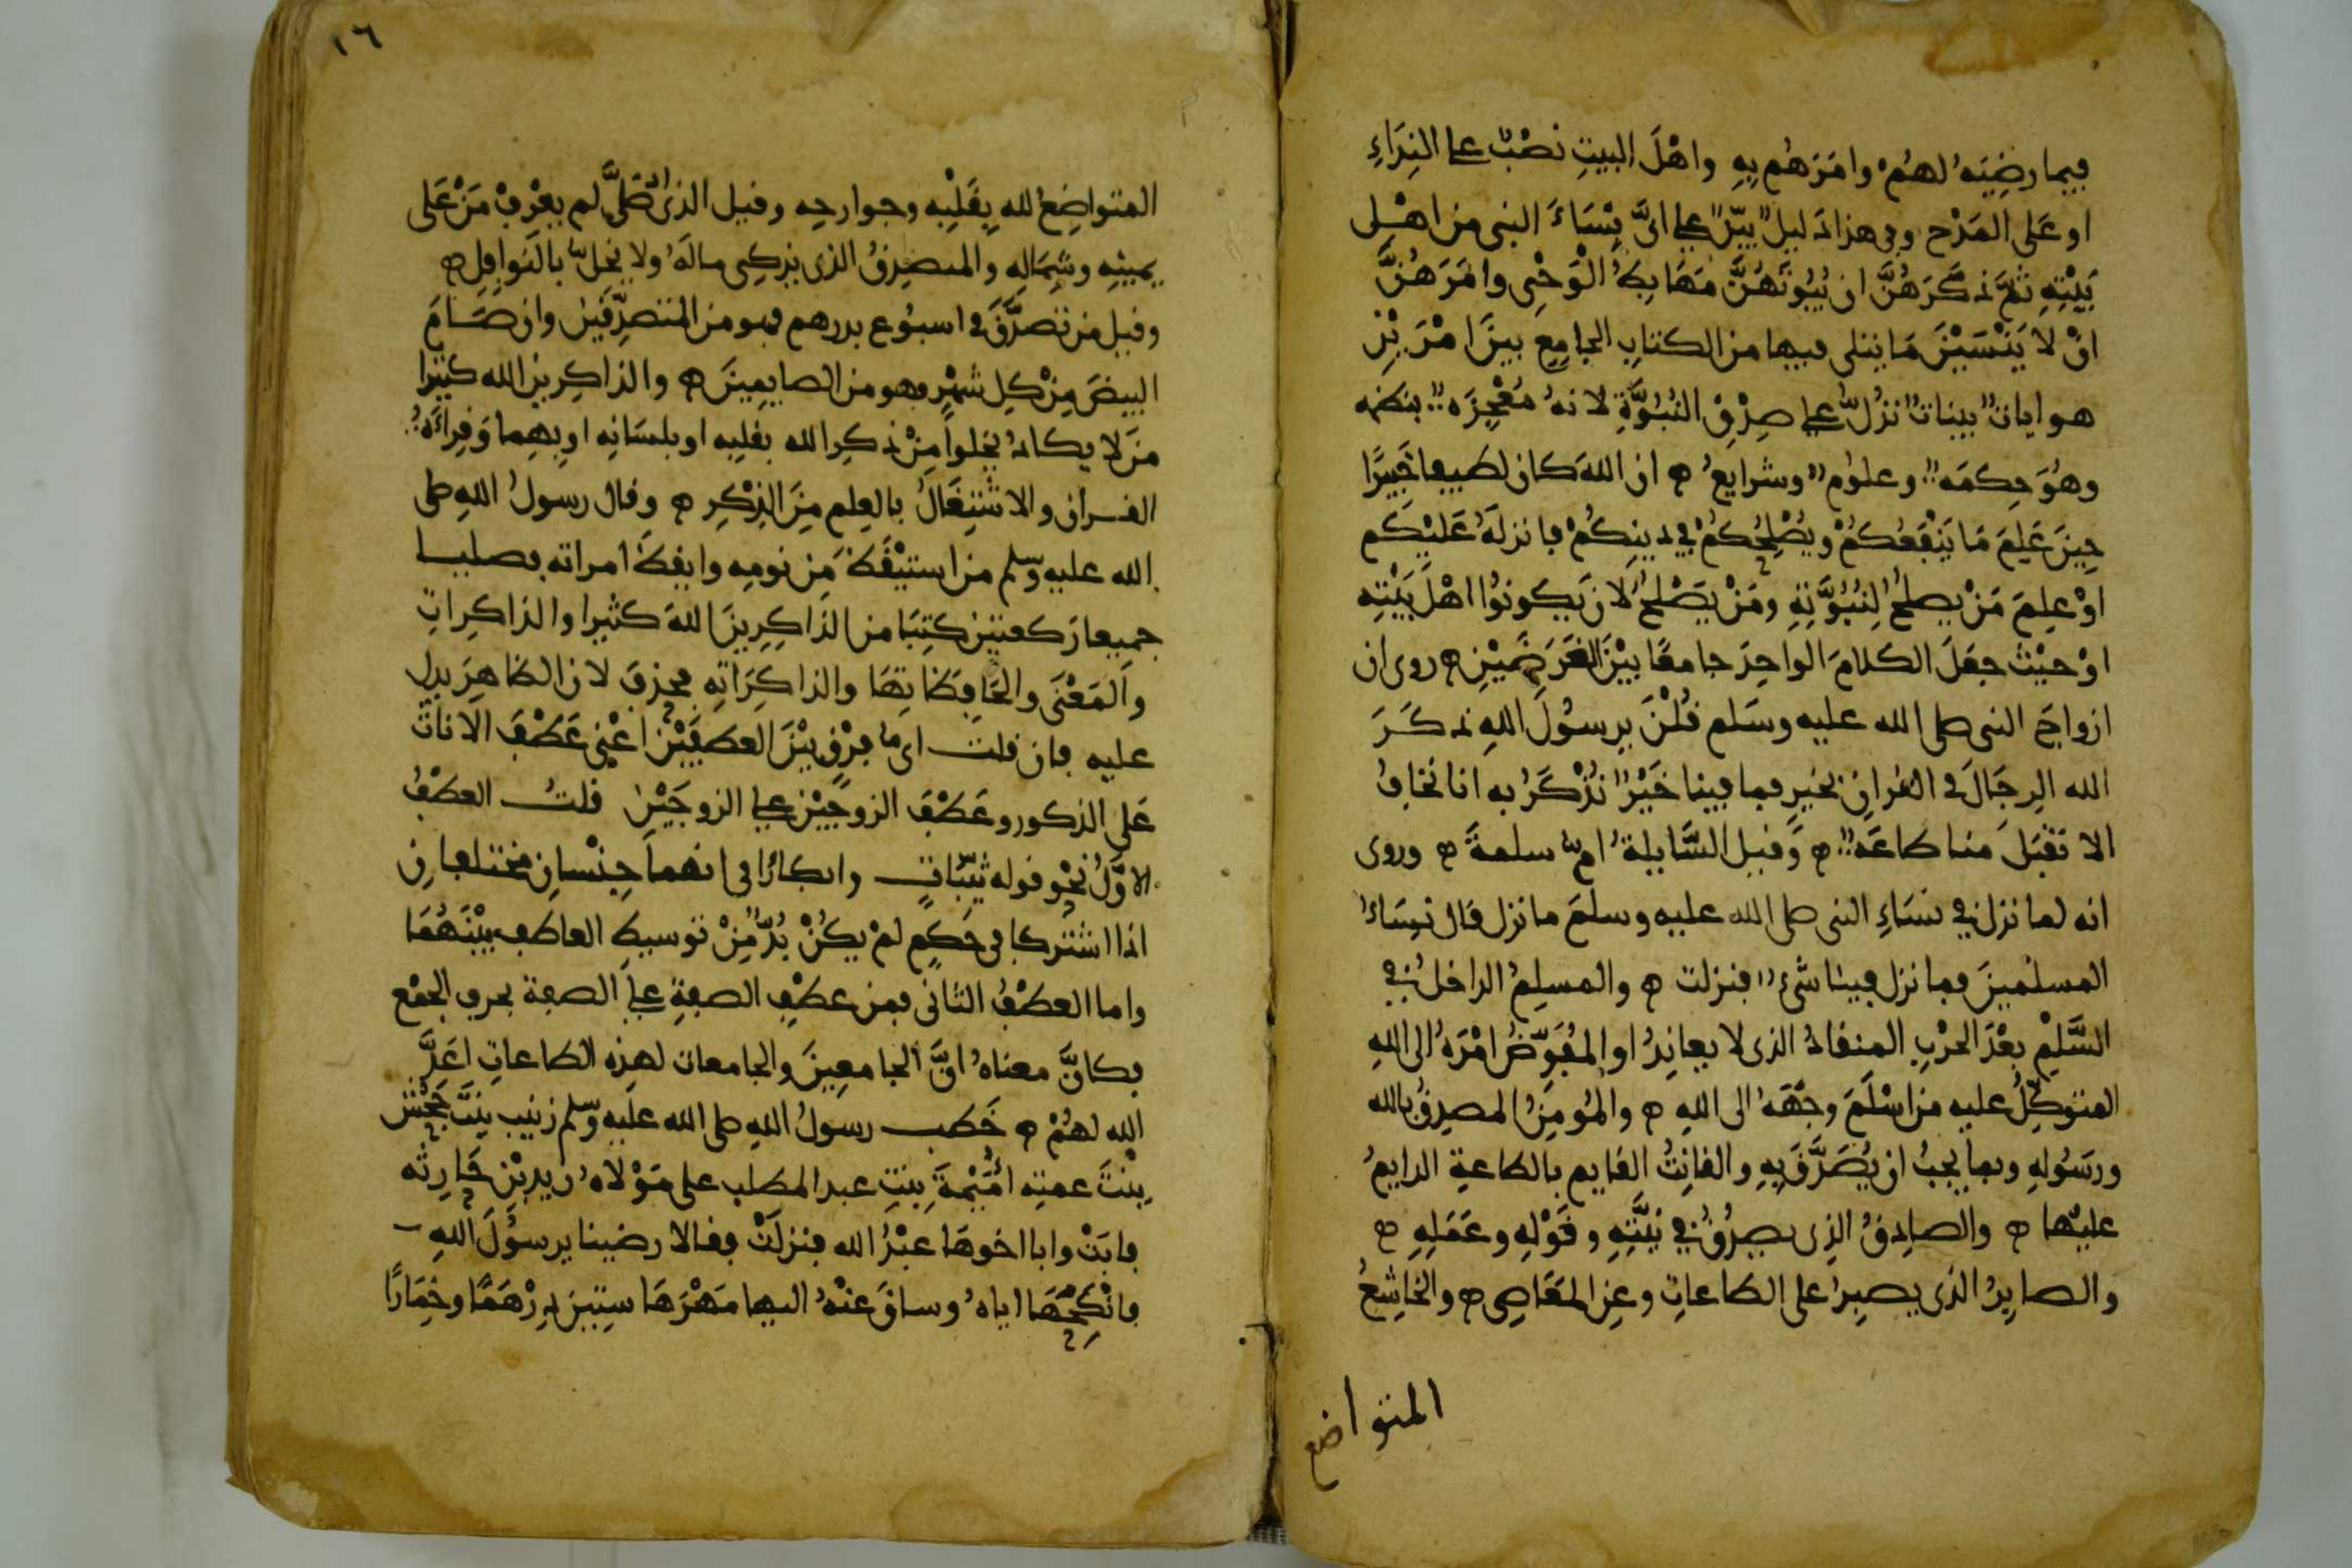 فيما رضيه لهم وامرهم به واهل البيت نصب على النداء
او على المدح وفي هذا دليل بين على ان نساء النبي من اهل
بيته ثم ذكرهن ان بيوتهن مهابط الوحي وامرهن
ان لا ينسين ما يتلى فيها من الكتاب الجامع بين امرين
هو ايات بينات تدل على صدق النبوة لانه معجزة بنظمه
وهو حكمة وعلوم وشرايع ان الله كان لطيفا خبيرا
حين علم ما ينفعكم ويصلحكم في دينكم فانزله عليكم
او علم من يصلح لنبوته ومن يصلح لان يكونوا اهل بيته
او حيث جعل الكلام الواحد جامعا بين الغرضين روى ان
ازواج النبي صلى الله عليه وسلم قلن يرسول الله ذكر
الله الرجال في القران بخير فما فينا خير نذكر به انا نخاف
الا تقبل منا طاعة وقيل السايلة ام سلمة وروى
انه لما نزل في نساء النبي صلى الله عليه وسلم ما نزل قال نساء
المسلمين فما نزل فينا شيء فنزلت والمسلم الداخل في
السلم بعد الحرب المنقاد الذي لا يعاند او المفوض امره الى الله
المتوكل عليه من اسلم وجهه الى الله والمومن المصدق بالله
ورسوله وبما يجب ان يصدق به والقانت القايم بالطاعة الدايم
عليها والصادق الذي يصدق في نيته وقوله وعمله
والصابر الذي يصبر على الطاعات وعن المعاصي والخاشع
المتواضع
١٦
المتواضع لله بقلبه وجوارحه وقيل الذي اذا صلى لم يعرف من على
يمينه وشماله والمتصدق الذي يزكي ماله ولا يخل بالنوافل
وقيل من تصدق في اسبوع بدرهم فهو من المتصدقين وان صام
البيض من كل شهر فهو من الصايمين والذاكرين الله كثيرا
من لا يكاد يخلوا من ذكر الله بقلبه او بلسانه او بهما وقراءة
القران والاشتغال بالعلم من الذكر وقال رسول الله صلى
الله عليه وسلم من استيقظ من نومه وايقظ امراته فصليا
جميعا ركعتين كتبا من الذاكرين الله كثيرا والذاكرات
والمعنى والحافظاتها والذاكراته فحذف لان الظاهر يدل
عليه فان قلت اي ما فرق بين العطفين اعني عطف الاناث
على الذكور وعطف الزوجين على الزوجين قلت العطف
الاول نحو قوله ثيبات وابكارا في انهما جنسان مختلفان
اذا اشتركا في حكم لم يكن بد من توسيط العاطف بينهما
واما العطف الثاني فمن عطف الصفة على الصفة بحرف الجمع
فكان معناه ان الجامعين والجامعات لهذه الطاعات اعد
الله لهم خطب رسول الله صلى الله عليه وسلم زينب بنت جحش
بنت عمته اميمة بنت عبد المطلب على مولاه زيد بن حارثه
فابت وابا اخوها عبد الله فنزلت فقالا رضينا يرسول الله
فانكحها اياه وساق عنه اليها مهرها ستين درهما وخمارا